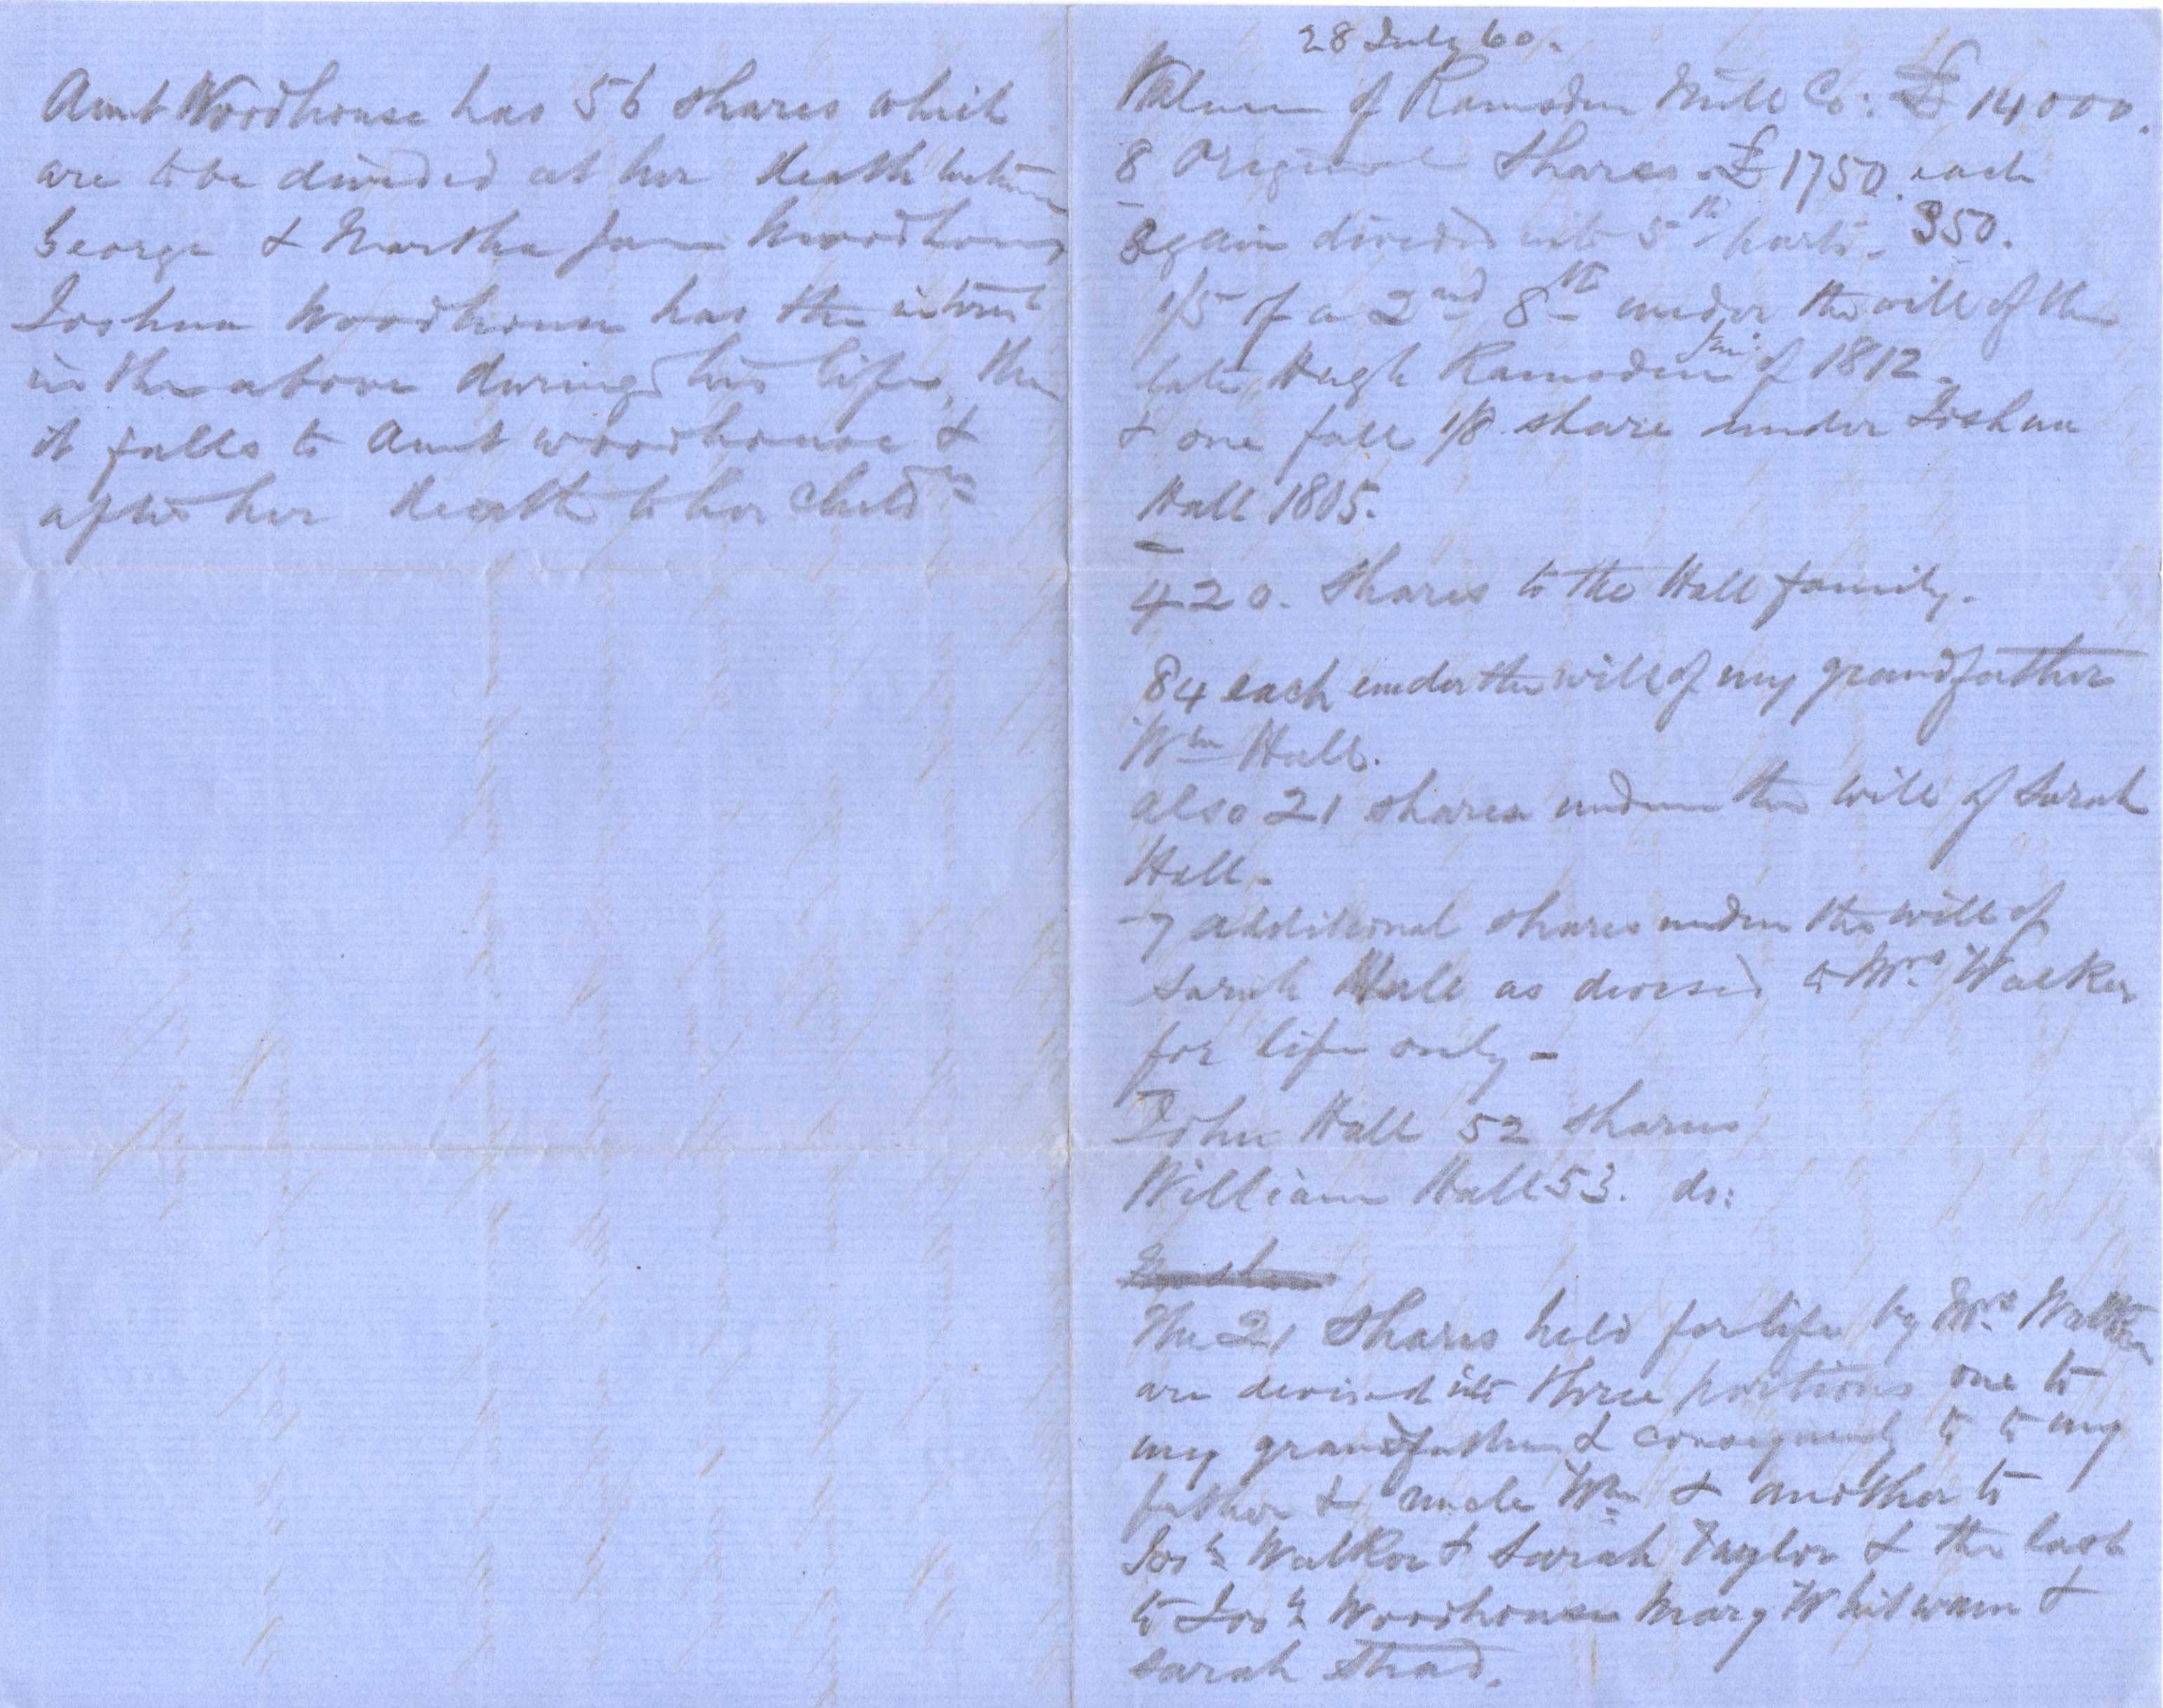 Aunt Woodhouse has 56 shares which
are to be divided at her death between
George & Martha Jane Woodhouse
Joshua Woodhouse has the interest
in the above during his life, then
it falls to Aunt Woodhouse &
after her death to her Child<sup>n</sup>
28 July 60.
Value of Ramsden Mill Co: £ 14000.
8 Original Shares. £1750. each
Again divided into 5<sup>th</sup> parts - 350.
1/5 of a 2<sup>nd</sup> 8<sup>th</sup> under the will of the
late Hugh Ramsden Jun<sup>r</sup> of 1812.
& one full 1/8 share under Joshua
Hall 1805.
420. Shares to the Hall family.
84 each under the will of my grandfather
W<sup>m</sup> Hall.
also 21 shares under the will of Sarah
Hall -
7 additional shares under the will of
Sarah Hall as devised to Mrs Walker
for life only -
John Hall 52 shares
William Hall 53. do:
The 21 Shares held for life by Mrs Walker
are devised into three portions one to
my grandfather & consequently to to my
father & uncle W<sup>m</sup> & another to
Jos<sup>h</sup> Walker & Sarah Taylor & the last
to Jos<sup>h</sup> Woodhouse Mary Whitwam &
Sarah Shad.